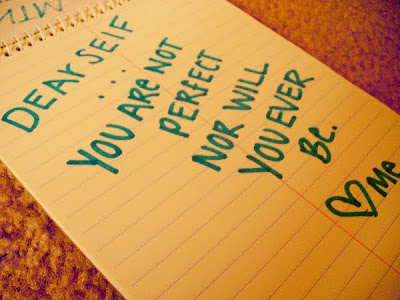 MTN
DEAR SELF
... YOU ARE NOT
PERFECT
NOR WILL
YOU EVER
BE.
♡ ME